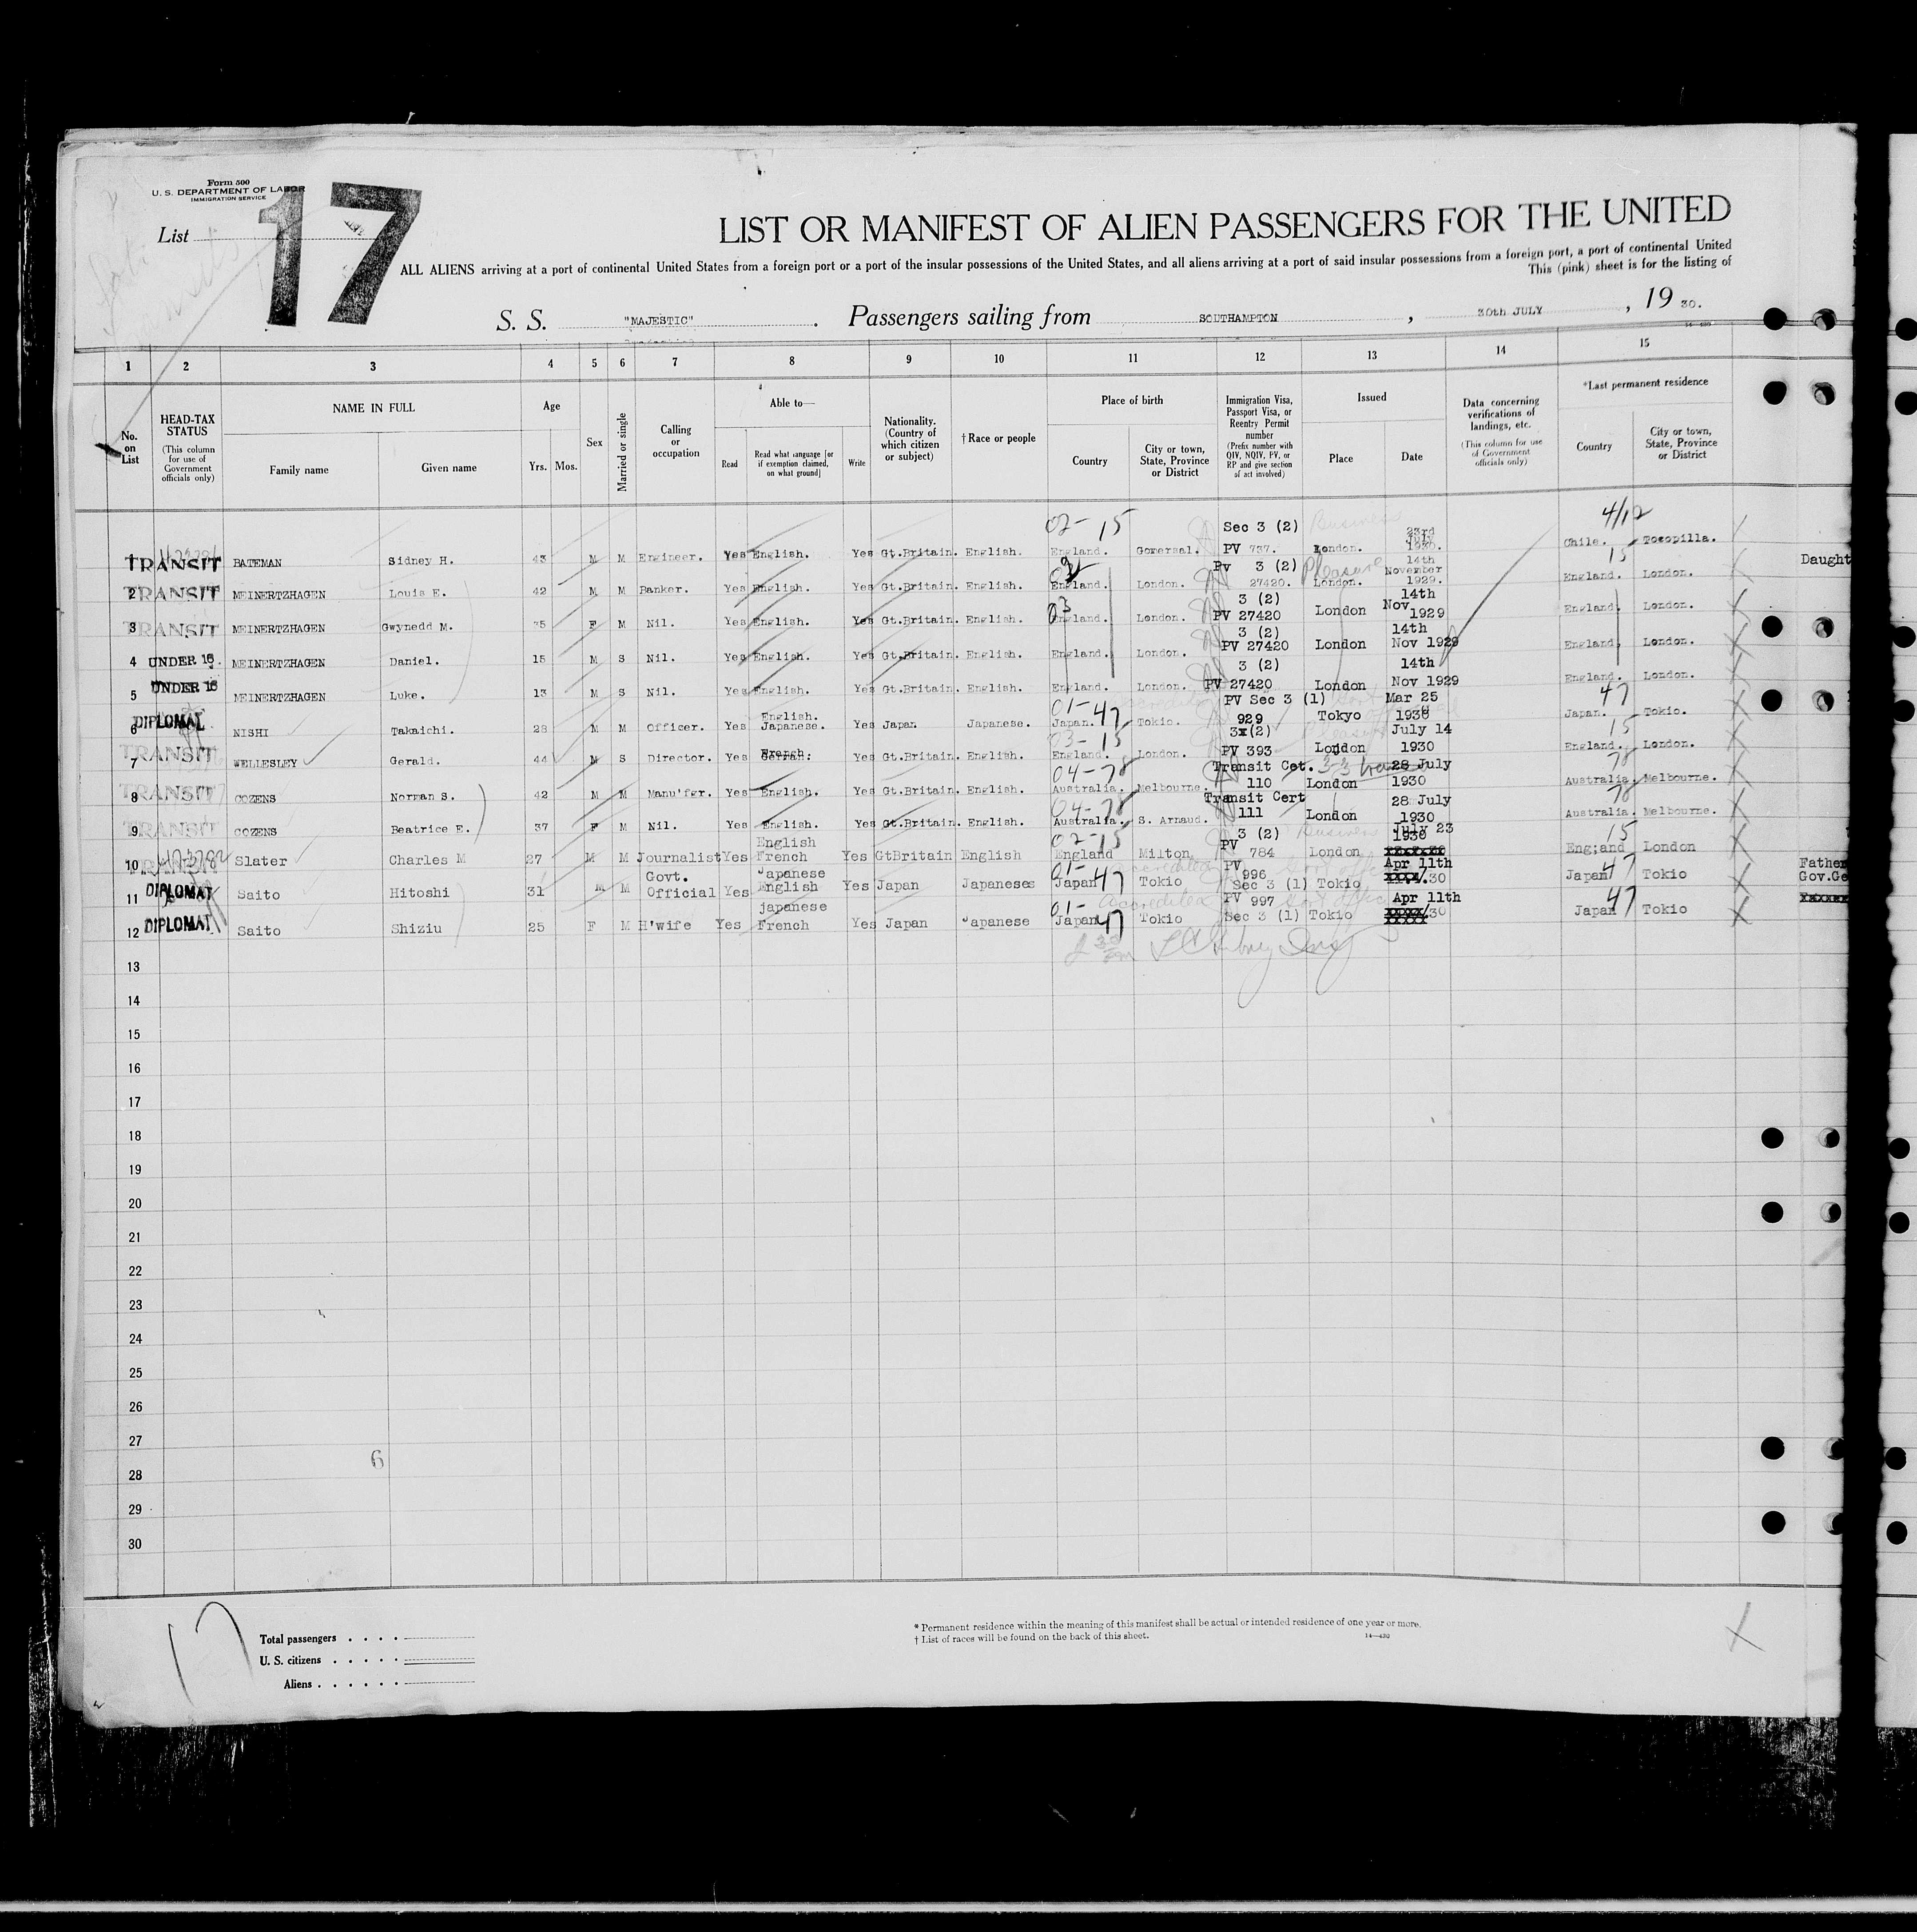 Form 500
U. S. DEPARTMENT OF LABOR
IMMIGRATION SERVICE
List
17
LIST OR MANIFEST OF ALIEN PASSENGERS FOR THE UNITED
ALL ALIENS arriving at a port of continental United States from a foreign port or a port of the insular possessions of the United States, and all aliens arriving at a port of said insular possessions from a foreign port, a port of continental United
This (pink) sheet is for the listing of
S. S. "MAJESTIC". Passengers sailing from SOUTHAMPTON, 30th JULY, 19 30.
14—430
1 2 3 4 5 6 7 8 9 10 11 12 13 14 15
No. on List
HEAD-TAX STATUS (This column for use of Government officials only)
NAME IN FULL
Family name
Given name
Age
Yrs. Mos.
Sex
Married or single
Calling or occupation
Able to—
Read
Read what language [or if exemption claimed, on what ground]
Write
Nationality. (Country of which citizen or subject)
† Race or people
Place of birth
Country
City or town, State, Province or District
Immigration Visa, Passport Visa, or Reentry Permit number
(Prefix number with QIV, NQIV, PV, or RP and give section of act involved)
Issued
Place
Date
Data concerning verifications of landings, etc.
(This column for use of Government officials only)
*Last permanent residence
Country
City or town, State, Province or District
02-15 Sec 3 (2) Business 23rd July 4/12
1 TRANSIT BATEMAN Sidney H. 43 M M Engineer. Yes English. Yes Gt.Britain. English. England. Gomersal. PV 737. London. 1930. Chile. Tocopilla.
Pv 3 (2) Pleasure 14th November 15 Daught
2 TRANSIT MEINERTZHAGEN Louis E. 42 M M Banker. Yes English. Yes Gt.Britain. English. England. London. 27420. London. 1929. England. London.
03 3 (2) 14th
3 TRANSIT MEINERTZHAGEN Gwynedd M. 35 F M Nil. Yes English. Yes Gt.Britain. English. England. London. PV 27420 London Nov 1929 England. London.
3 (2) 14th
4 UNDER 16 MEINERTZHAGEN Daniel. 15 M S Nil. Yes English. Yes Gt.Britain. English. England. London. PV 27420 London Nov 1929 England. London.
3 (2) 14th
5 UNDER 16 MEINERTZHAGEN Luke. 13 M S Nil. Yes English. Yes Gt.Britain. English. England. London. PV 27420 London Nov 1929 England. London.
01-47 PV Sec 3 (1) Mar 25 47
6 DIPLOMAT NISHI Takaichi. 28 M M Officer. Yes English. Japanese. Yes Japan Japanese. Japan. Tokio. 929 Tokyo 1930 Japan. Tokio.
03-15 3x(2) Pleasure July 14 15
7 TRANSIT WELLESLEY Gerald. 44 M S Director. Yes French. German. Yes Gt.Britain. English. England. London. PV 393 London 1930 England. London.
04-78 Transit Cet. 28 July 78
8 TRANSIT COZENS Norman S. 42 M M Manu'fgr. Yes English. Yes Gt.Britain. English. Australia. Melbourne. 110 London 1930 Australia. Melbourne.
04-78 Transit Cert 28 July 78
9 TRANSIT COZENS Beatrice E. 37 F M Nil. Yes English. Yes Gt.Britain. English. Australia. S. Arnaud. 111 London 1930 Australia. Melbourne.
02-15 3 (2) Business July 23 1930 15
10 TRANSIT Slater Charles M 27 M M Journalist Yes English French Yes GtBritain English England Milton PV 784 London Eng;and London
01-47 Apr 11th 47 Father
11 DIPLOMAT Saito Hitoshi 31 M M Govt. Official Yes Japanese English Yes Japan Japaneses Japan Tokio PV 996 Sec 3 (1) Tokio 30 Japan Tokio Gov.Ge
01-47 accredited Apr 11th 47
12 DIPLOMAT Saito Shiziu 25 F M H'wife Yes japanese French Yes Japan Japanese Japan Tokio PV 997 Sec 3 (1) Tokio 30 Japan Tokio
13
14
15
16
17
18
19
20
21
22
23
24
25
26
27
6
28
29
30
17
Total passengers
U. S. citizens
Aliens
* Permanent residence within the meaning of this manifest shall be actual or intended residence of one year or more.
† List of races will be found on the back of this sheet.
14—430